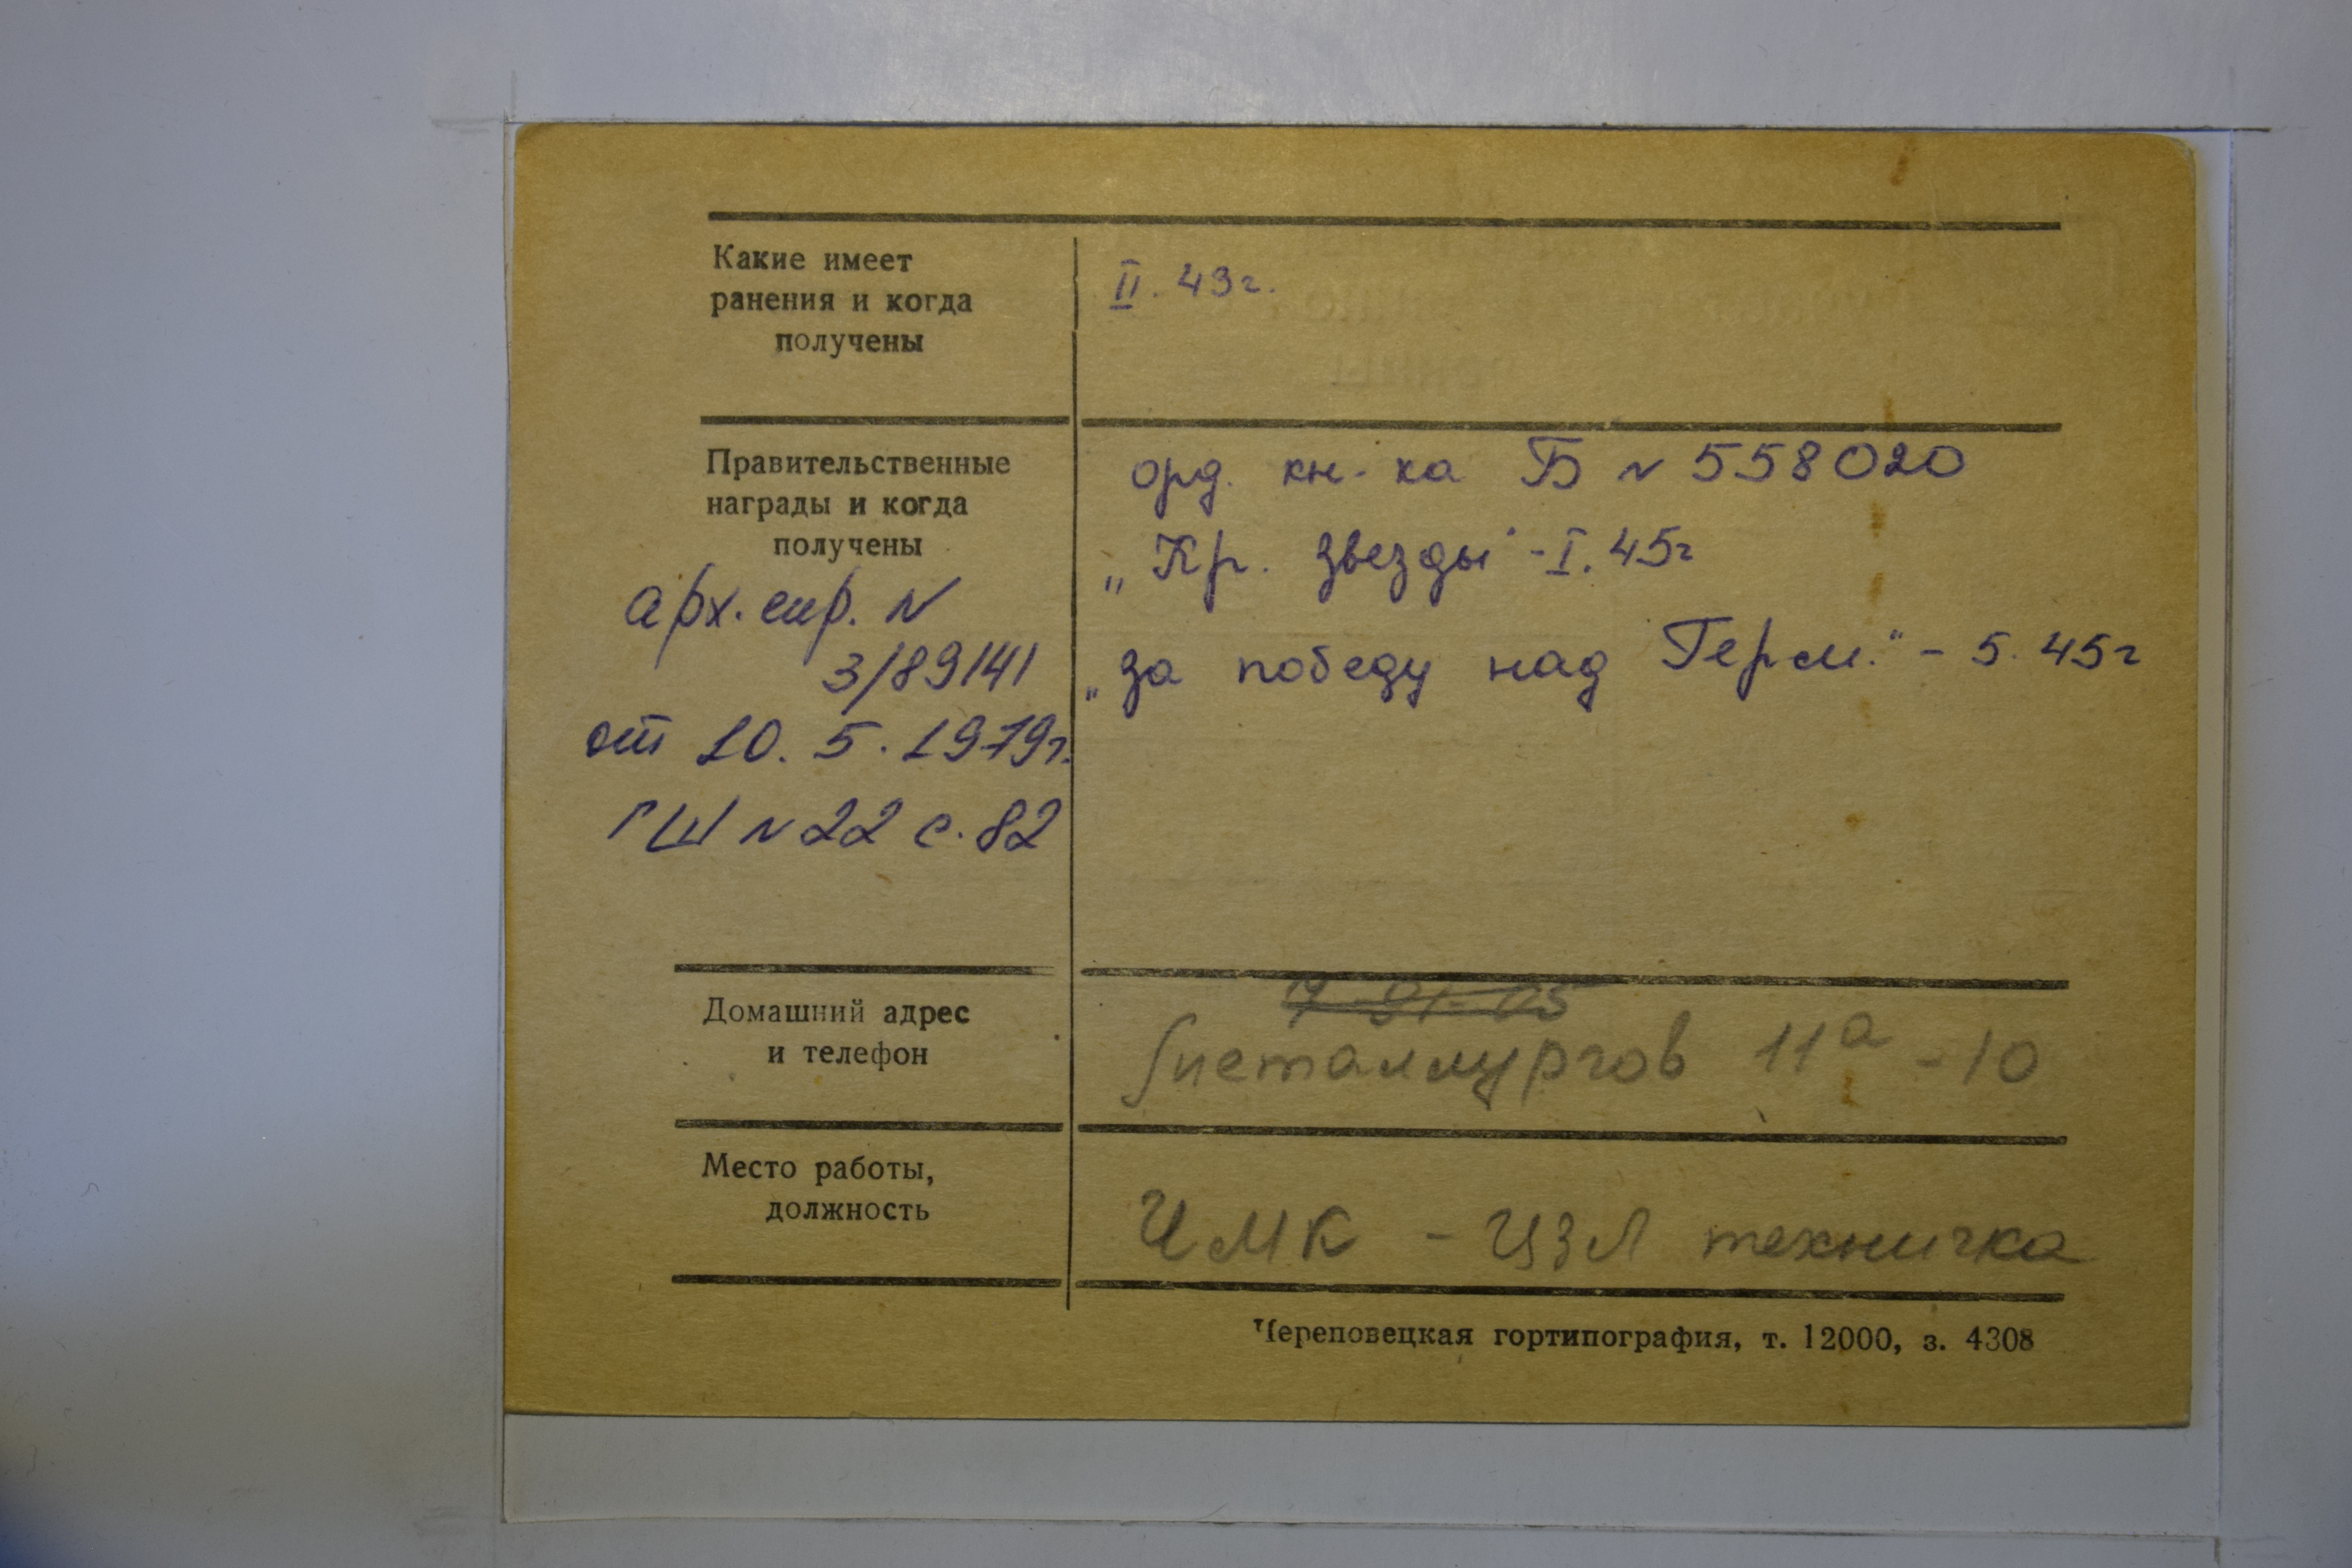 Какие имеет
ранения и когда
получены
II. 43г.
Правительственные
награды и когда
получены
арх. спр. N
3/89141
от 10. 5. 1979г.
ГШ N 22 с. 82
орд. кн-ка Б N 558020
„Кр. звезды" - I. 45г
„за победу над Герм." - 5. 45г
Домашний адрес
и телефон
Металлургов 11а - 10
Место работы,
должность
ЧМК - ЦЗЛ техничка
Череповецкая гортипография, т. 12000, з. 4308